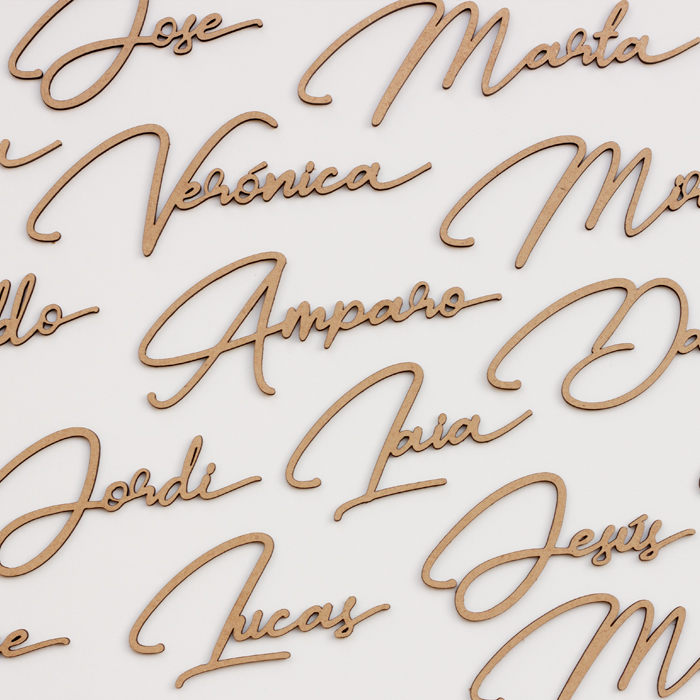 Jose
Marta
Verónica
Amparo
Laia
Jordi
Jesús
Lucas